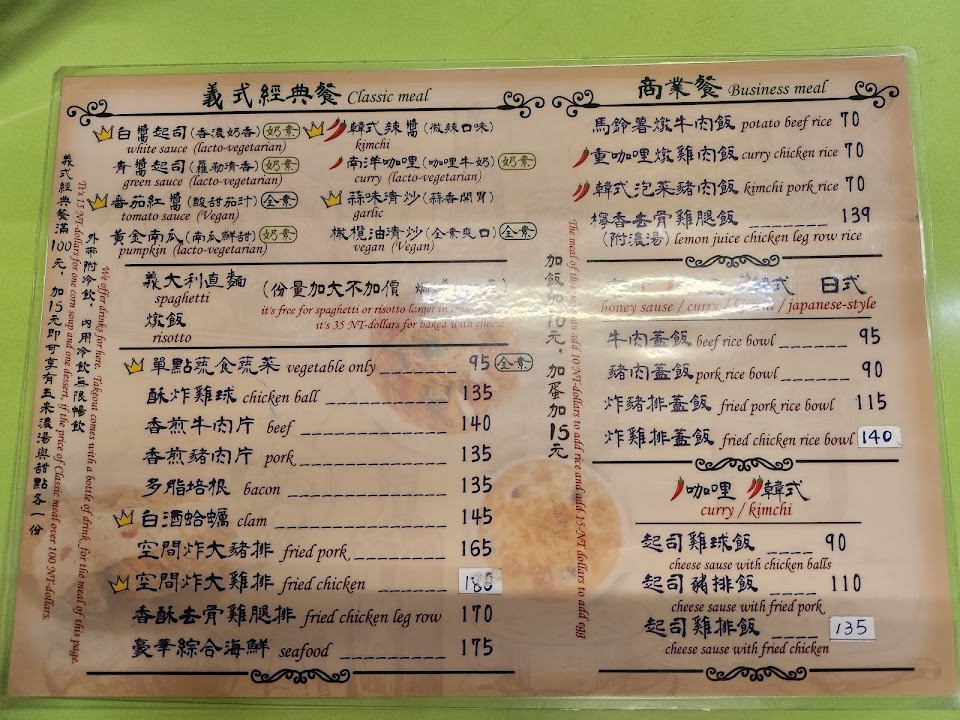 義式經典餐 Classic meal
白醬起司(香濃奶香) 奶素
white sauce (lacto-vegetarian)
青醬起司(羅勒清香) 奶素
green sauce (lacto-vegetarian)
番茄紅醬(酸甜茄汁) 全素
tomato sauce (Vegan)
黃金南瓜(南瓜鮮甜) 奶素
pumpkin (lacto-vegetarian)
韓式辣醬(微辣口味)
kimchi
南洋咖哩(咖哩牛奶) 奶素
curry (lacto-vegetarian)
蒜味清炒(蒜香開胃)
garlic
橄欖油清炒(全素爽口) 全素
vegan (Vegan)
義大利直麵
spaghetti
燉飯
risotto
(份量加大不加價
it's free for spaghetti or risotto larger in
it's 35 NT-dollars for baked with cheese
單點蔬食蔬菜 vegetable only 95 全素
酥炸雞球 chicken ball 135
香煎牛肉片 beef 140
香煎豬肉片 pork 135
多脂培根 bacon 135
白酒蛤蠣 clam 145
空間炸大豬排 fried pork 165
空間炸大雞排 fried chicken 180
香酥去骨雞腿排 fried chicken leg row 170
豪華綜合海鮮 seafood 175
義式經典餐滿100元，加15元即可享有玉米濃湯與甜點各一份
It's 15 NT-dollars for one corn soup and one dessert, if the price of Classic meal over 100 NT-dollars.
外帶附冷飲，內用冷飲無限暢飲
We offer drinks for here. Takeout comes with a bottle of drink for the meal of this page.
商業餐 Business meal
馬鈴薯燉牛肉飯 potato beef rice 70
重咖哩燉雞肉飯 curry chicken rice 70
韓式泡菜豬肉飯 kimchi pork rice 70
檸香去骨雞腿飯 139
(附濃湯) lemon juice chicken leg row rice
韓式 日式
honey sause / curry / / japanese-style
牛肉蓋飯 beef rice bowl 95
豬肉蓋飯 pork rice bowl 90
炸豬排蓋飯 fried pork rice bowl 115
炸雞排蓋飯 fried chicken rice bowl 140
咖哩 韓式
curry / kimchi
起司雞球飯 90
cheese sause with chicken balls
起司豬排飯 110
cheese sause with fried pork
起司雞排飯 135
cheese sause with fried chicken
加飯加10元，加蛋加15元
The meal of this add 10 NT-dollars to add rice and add 15-NT dollars to add egg